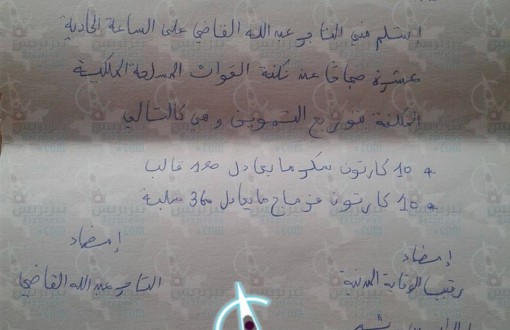 إستلم مني التاجر عبد الله القاضي على الساعة الحادية
عشرة صباحا عند ثكنة القوات المسلحة الملكية
المكلفة بتوزيع التموين وهي كالتالي
10 كارتون سكر ما يعادل 180 قالب
10 كارتون فرماج ما يعادل 36 علبة
إمضاء
إمضاء
رقيب الوقاية المدنية
التاجر عبد الله القاضي